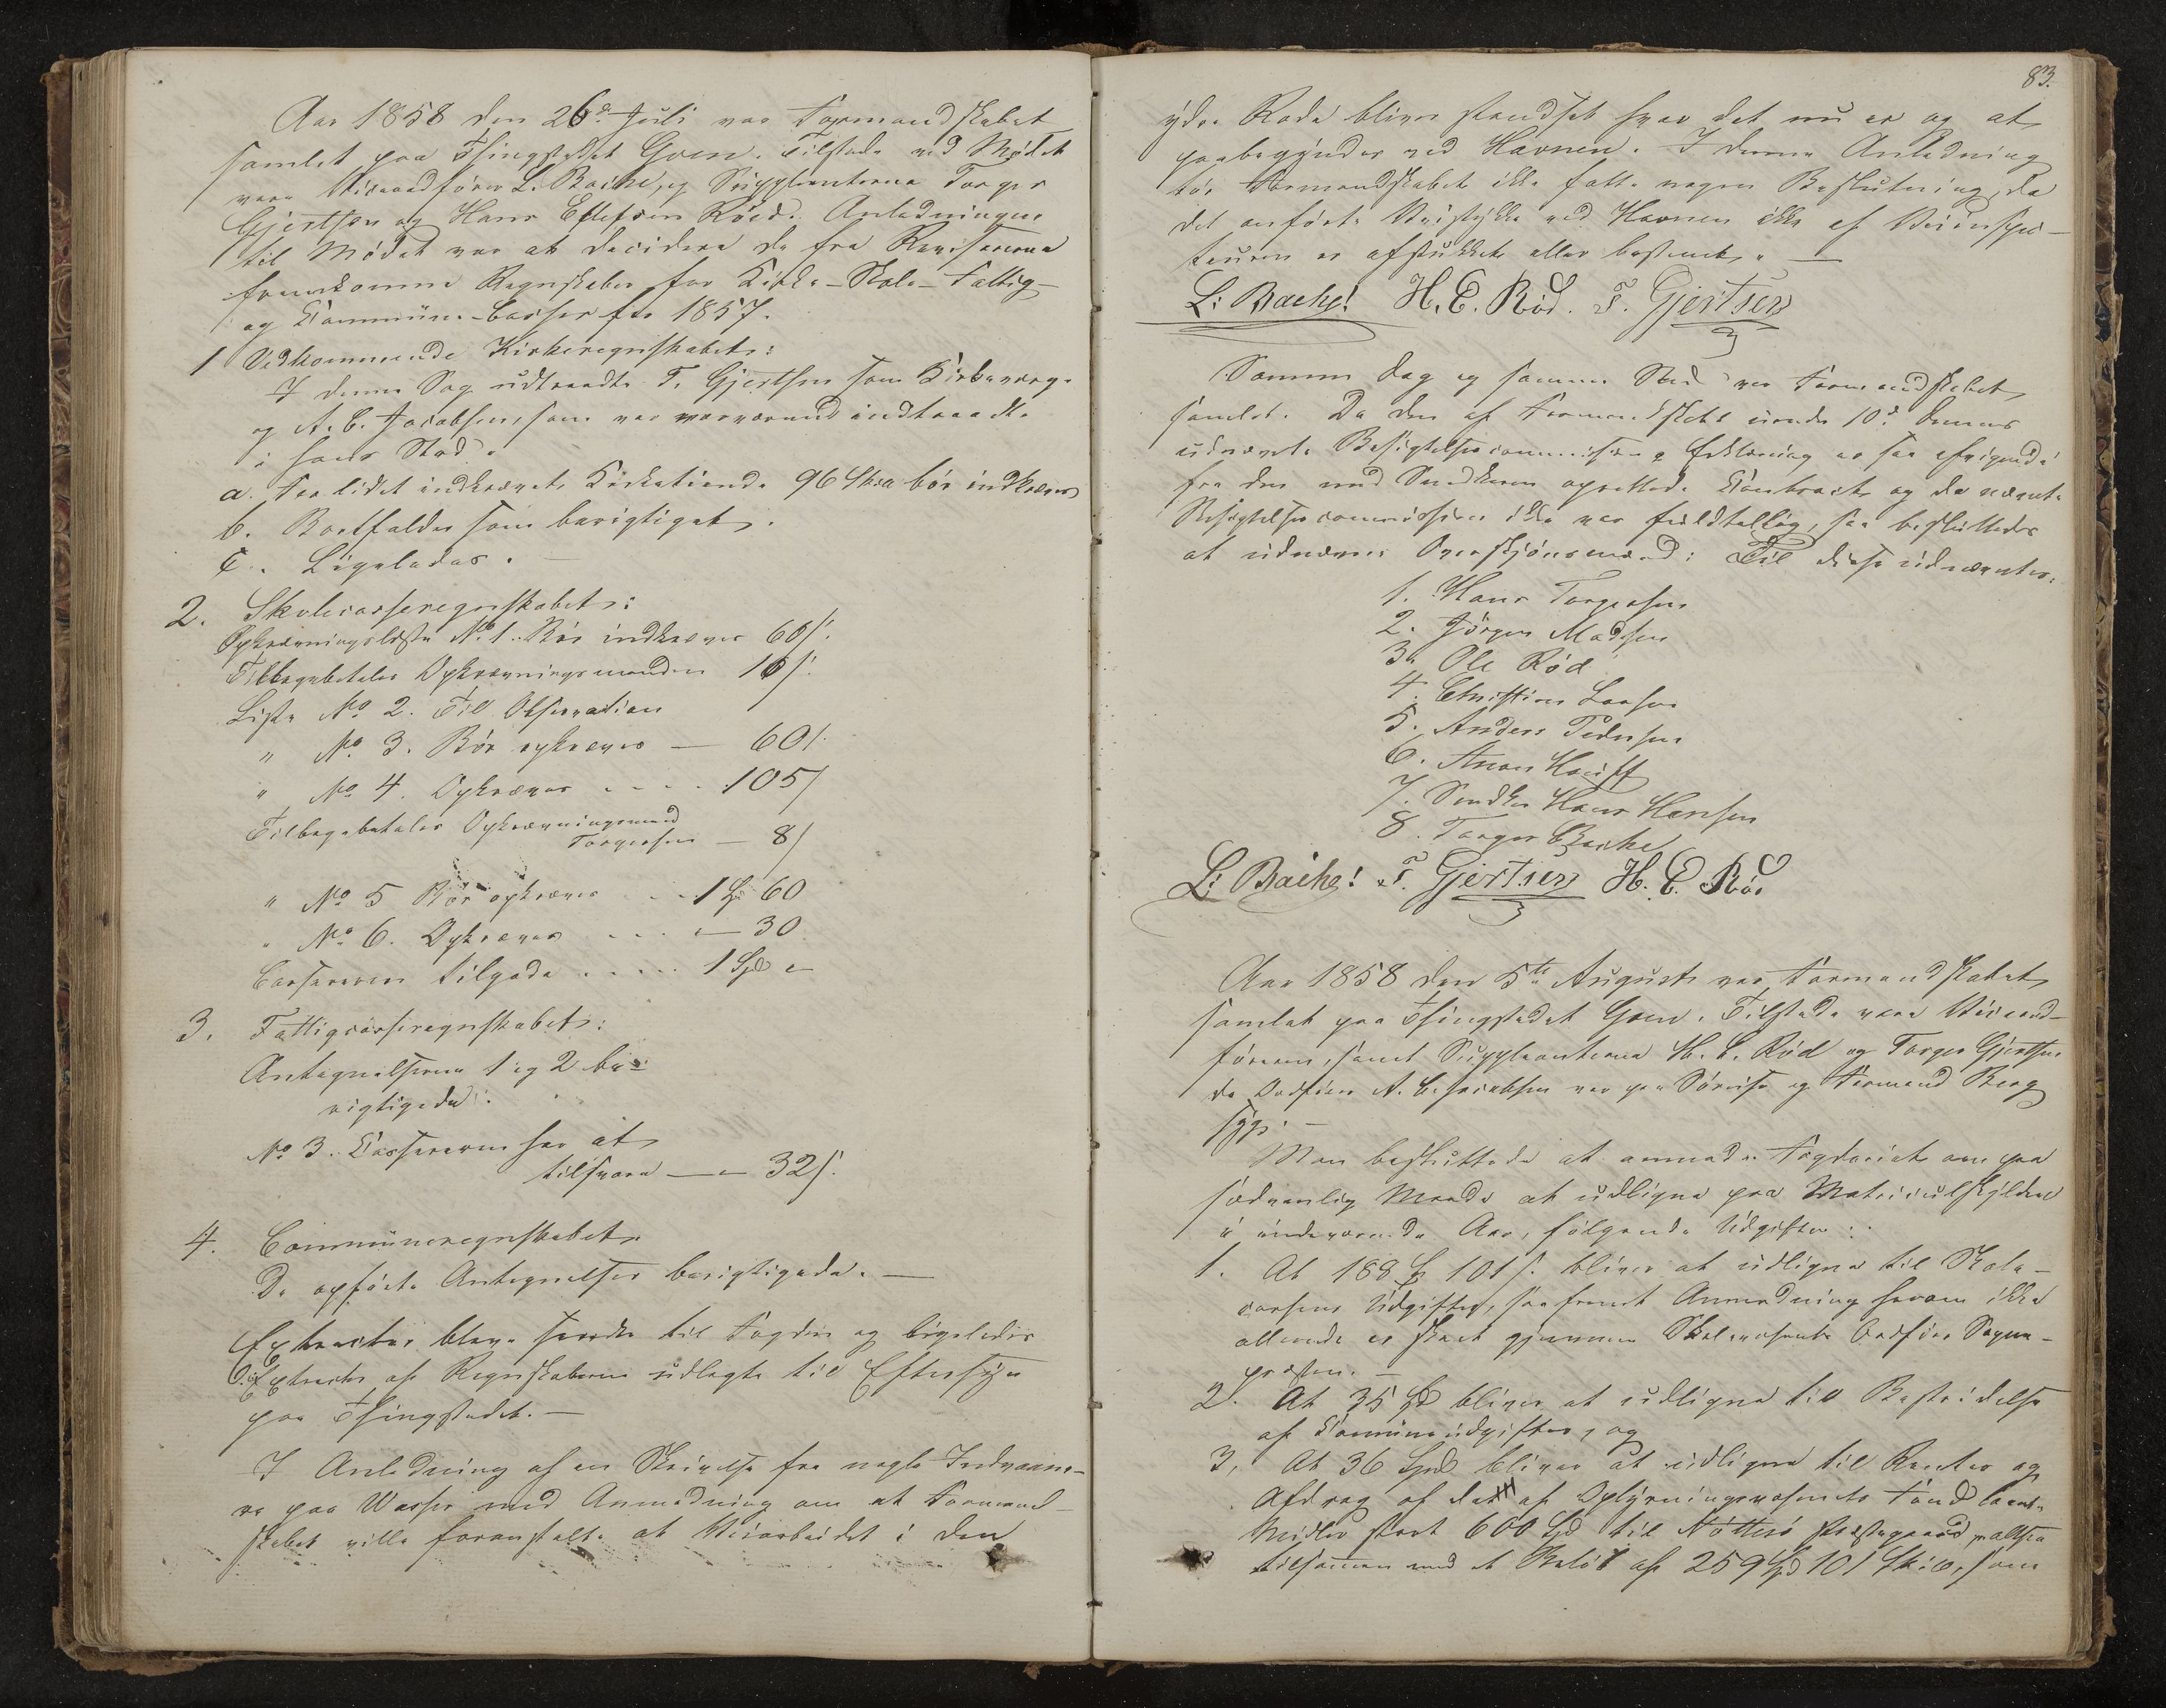 Aar 1858 den 26de Juli var Formandskabet
samlet paa Thingstedet Goen. Tilstede ved Mødet
vare Viceordfører L. Bache, og Suppleanterne Torger
Gjertsen og Hans Ellefsen Røed. Anledningen
til Mødet var at decidere de fra Revisorerne
fremkomne Regnskaber for Kirke- Skole- Fattig-
og Commune-Casser for 1857.
1 Vedkommende Kirkeregnskabet:
I denne Sag udtraadte T. Gjertsen som Kirkeværge
og A. C. Jacobsen, som var nærværende indtraadte
i hans Sted.
a. For lidet indkrævet Kirketiende 96 Skil bør indkræves
b. Bortfalder som berigtiget.
c. Ligeledes. —
2. Skolecasseregnskabet:
Opkrævningsliste No 1. Bør indkræves 60 s.
Tilbagebetales Opkrævningsmanden 16 s.
Liste No 2. Til Observation
" No 3. Bør opkræves — 60 s.
" No 4. Opkræves . . . . 105 s
Tilbagebetales Opkrævningsmand
Torgersen — 8 s
" No 5 Bør opkræves . . 1 Spd 60
" No 6. Opkræves . . . " — 30
Cassereren tilgode . . . . . 1 Spd "
3. Fattigcasseregnskabet:
Antegnelserne 1 og 2 be-
rigtigede.
No 3. Cassereren har at
tilsvare — " — 32 s.
4. Communeregnskabet.
De opførte Antegnelser berigtigede. —
Extracter bleve sendte til Fogden og ligeledes
Extracter af Regnskaberne udlagte til Eftersyn
paa Thingstedet. —
I Anledning af en Skrivelse fra nogle Indvaane-
re paa Wasser med Anmodning om at Formand-
skabet ville foranstalte at Veiarbeidet i den
83.
ydre Rode bliver standset hvor det nu er og at
paabegyndes ved Havnen. I denne Anledning
tør Formandskabet ikke fatte nogen Beslutning, da
det anførte Veistykke ved Havnen ikke af Veiinspec-
teuren er afstukket eller bestemt. —
L: Bache! H. E. Rød. T. Gjertsen
Samme Dag og samme Sted var Formandskabet
samlet. Da den af Formandskabet under 10de dennes
udnævnte Besigtelsescommissions Erklæring er saa afvigende
fra den med Snedkeren oprettede Contract og da nævnte
Besigtelsescommission ikke var fuldtallig, saa besluttedes
at udnævne Overskjønsmænd: Til disse udnævntes:
1. Hans Torgersen
2. Jørgen Madsen
3. Ole Rød
4. Christian Larsen
5. Anders Pedersen
6. Hauff
7. Snedker Hans Hansen
8. Torger Bache
L: Bache! T. Gjertsen H. E. Rød
Aar 1858 den 5te August var Formandskabet
samlet paa Thingstedet Goen. Tilstede vare Viceord-
føreren, samt Suppleanterne H. E. Rød og Torger Gjertsen
da Ordfører A. C. Jacobsen var paa Søreise og Formand Berg
syg. —
Man besluttede at anmode Fogderiet om paa
sædvanlig Maade at udligne paa Matriculskylden
i indeværende Aar, følgende Udgifter:
1. At 188 Spd 101 s. bliver at udligne til Skole-
cassens Udgifter, saafremt Anmodning herom ikke
allerede er skeet gjennem Skolevæsenets Ordfører Sogne-
præsten. —
2. At 35 Spd bliver at udligne til Bestridelse
af Communeudgifter, og
3, At 36 Spd bliver at udligne til Renter og
Afdrag af det af Oplysningsvæsenets Fond laante
Midler stort 600 Spd til Nøtterø Præstegaard, altsaa
tilsammen med et Beløb af 259 Spd 101 Skill, som